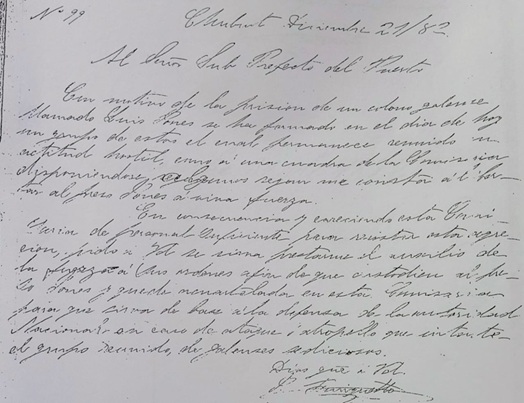 Nº 99
Chubut Diciembre 21/82
Al Señor Sub Prefecto del Puerto
Con motivo de la prision de un colono galense
llamado Luis Jones se ha formado en el dia de hoy
un grupo de estos el cual permanece reunido en
actitud hostil, como á una cuadra de la Comisaria
disponiendose, segun me consta á
al preso Jones á viva fuerza.
En consecuencia y careciendo esta Comi-
saria de personal suficiente para resistir esta agre-
cion, pido á Vd se sirva prestarme el auxilio de
la fuerza á sus ordenes afin de que custodien al pre-
so Jones y quede en esta Comisaria
para que sirva de base á la defensa de la autoridad
Nacional en caso de ataque ó atropello que intente
el grupo reunido, de galenses sediciosos.
Dios gue á Vd.